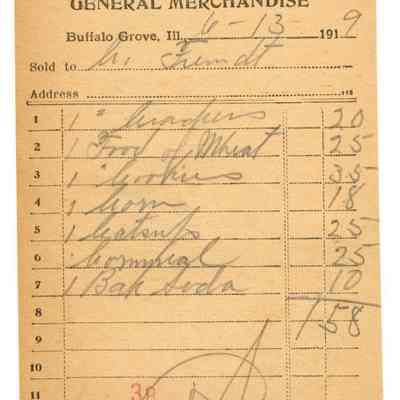 GENERAL MERCHANDISE
Buffalo Grove, Ill. 6-13 1919
Sold to
Address
1 1 " Crackers 20
2 1 Food of Wheat 25
3 1 " Cookies 35
4 1 Corn 18
5 1 Catsups 25
6 Cornmeal 25
7 1 Bak Soda 10
8 1 58
9
10
11 39